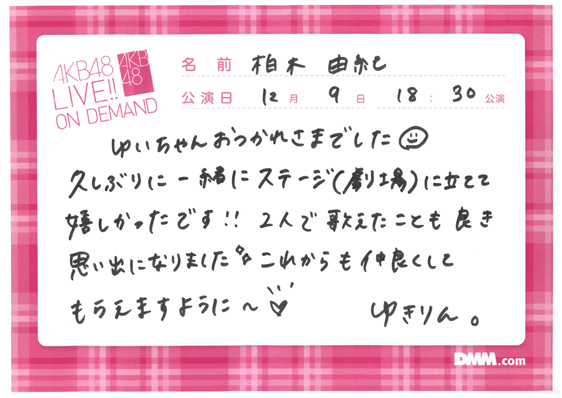 AKB48
LIVE!!
ON DEMAND
AKB
48
名前 柏木 由紀
公演日 12月 9日 18:30公演
ゆいちゃんおつかれさまでした
久しぶりに一緒にステージ(劇場)に立てて
嬉しかったです!! 2人で歌えたことも良き
思い出になりました これからも仲良くして
もらえますように〜♡
ゆきりん。
DMM.com